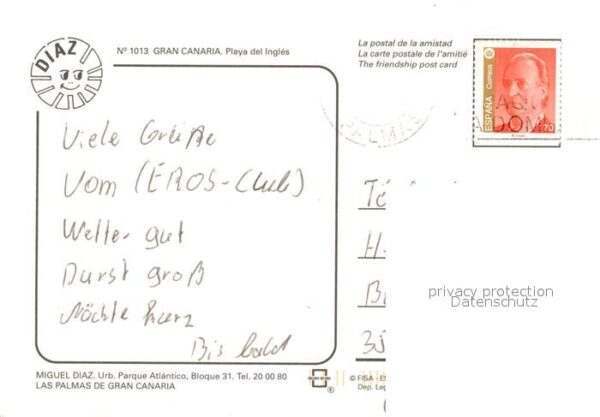 DIAZ
Nº 1013 GRAN CANARIA. Playa del Inglés
La postal de la amistad
La carte postale de l'amitié
The friendship post card
ESPAÑA
Correos
70
PALMAS
Viele Grüße
vom (EROS-Club)
Wetter gut
Durst groß
Nächte kurz
Bis bald
privacy protection
Datenschutz
MIGUEL DIAZ. Urb. Parque Atlántico, Bloque 31. Tel. 20 00 80
LAS PALMAS DE GRAN CANARIA
© FISA - ES
Dep. Leg